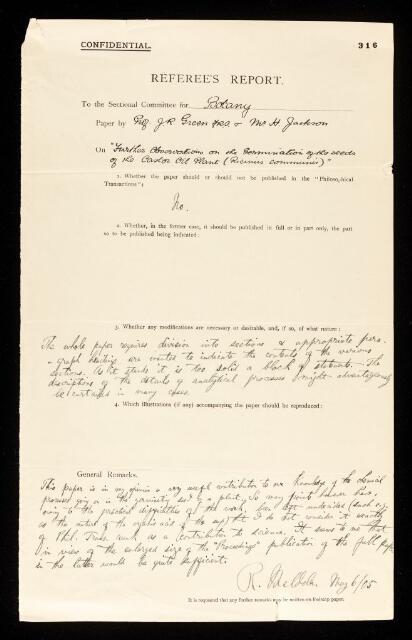 CONFIDENTIAL.
316
REFEREE'S REPORT.
To the Sectional Committee for Botany
Paper by Prof J.R Green FRS & Mr H Jackson
On "Further Observations on the Germination of the seeds
of the Castor Oil Plant (Ricinus communis)"
1. Whether the paper should or should not be published in the "Philosophical
Transactions":
No.
2. Whether, in the former case, it should be published in full or in part only, the part
so to be published being indicated:
3. Whether any modifications are necessary or desirable, and, if so, of what nature:
The whole paper requires division into sections & appropriate para-
-graph headings are wanted to indicate the contents of the various
sections. As it stands it is too solid a block of statements. The
descriptions of the details of analytical processes might advantageously
be curtailed in many cases.
4. Which illustrations (if any) accompanying the paper should be reproduced:
General Remarks.
This paper is in my opinion a very useful contribution to our knowledge of the chemical
processes going on in the germinating seed of a plant. So many points however have,
owing to the practical difficulties of the work, been left undecided (such e.g.
as the nature of the) that I do not consider it exactly
of Phil. Trans. rank as a contribution to science. It seems to me that
in view of the enlarged size of the "Proceedings" publication of the full paper
in the latter would be quite sufficient.
R. Meldola. May 6/05
It is requested that any further remarks may be written on foolscap paper.